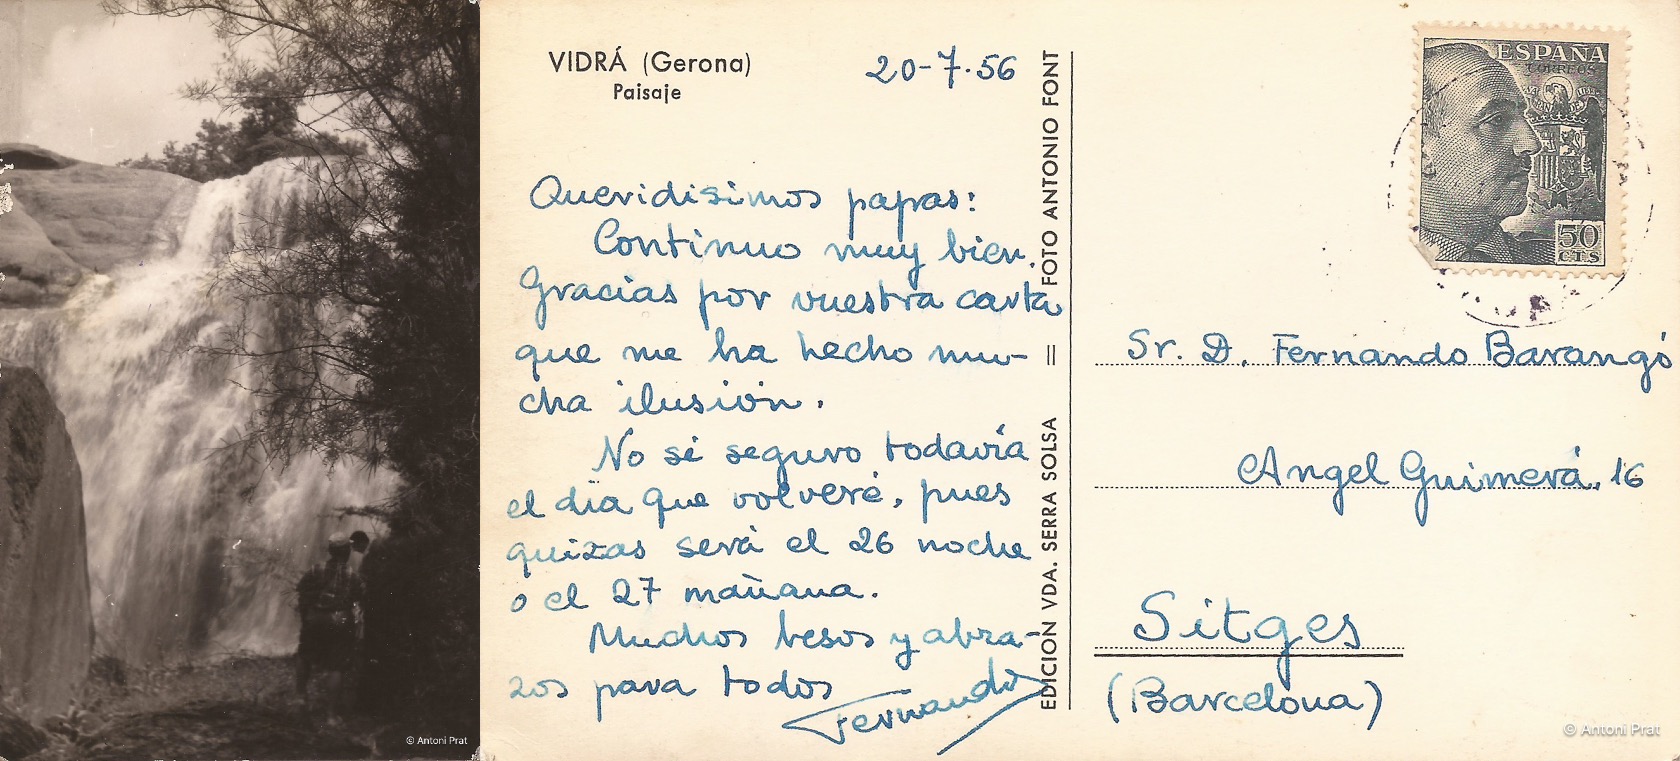 © Antoni Prat
VIDRÁ (Gerona)
Paisaje
20-7-56
Queridisimos papas:
Continuo muy bien.
Gracias por vuestra carta
que me ha hecho mu-
cha ilusión.
No sé seguro todavía
el día que volveré, pues
quizas será el 26 noche
o el 27 mañana.
Muchos besos y abra-
zos para todos
Fernando
EDICION VDA. SERRA SOLSA = FOTO ANTONIO FONT
ESPAÑA
CORREOS
50
CTS
Sr. D. Fernando Barangó
Angel Guimerá, 16
Sitges
(Barcelona)
© Antoni Prat